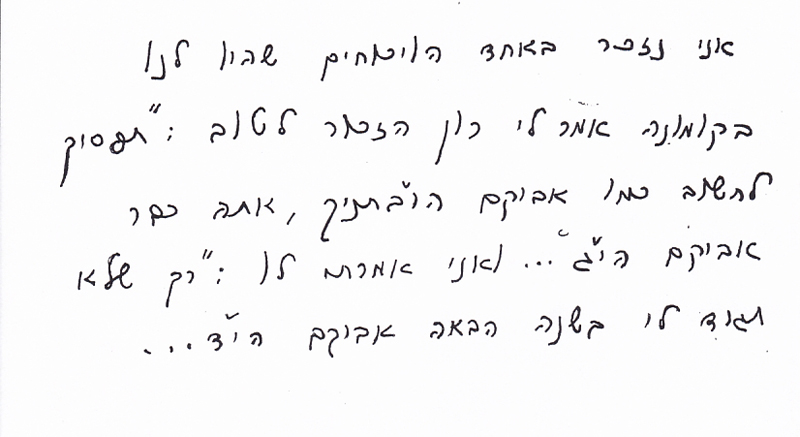 אני נזכר באחד הויכוחים שהיו לנו
בקומונה אמר לי רון הזכור לטוב : "תפסיק
לחשוב כמו אביקם הי"בתניק, אתה כבר
אביקם הי"ג"... ואני אמרתי לו : "רק שלא
תגיד לי בשנה הבאה אביקם הי"ד...